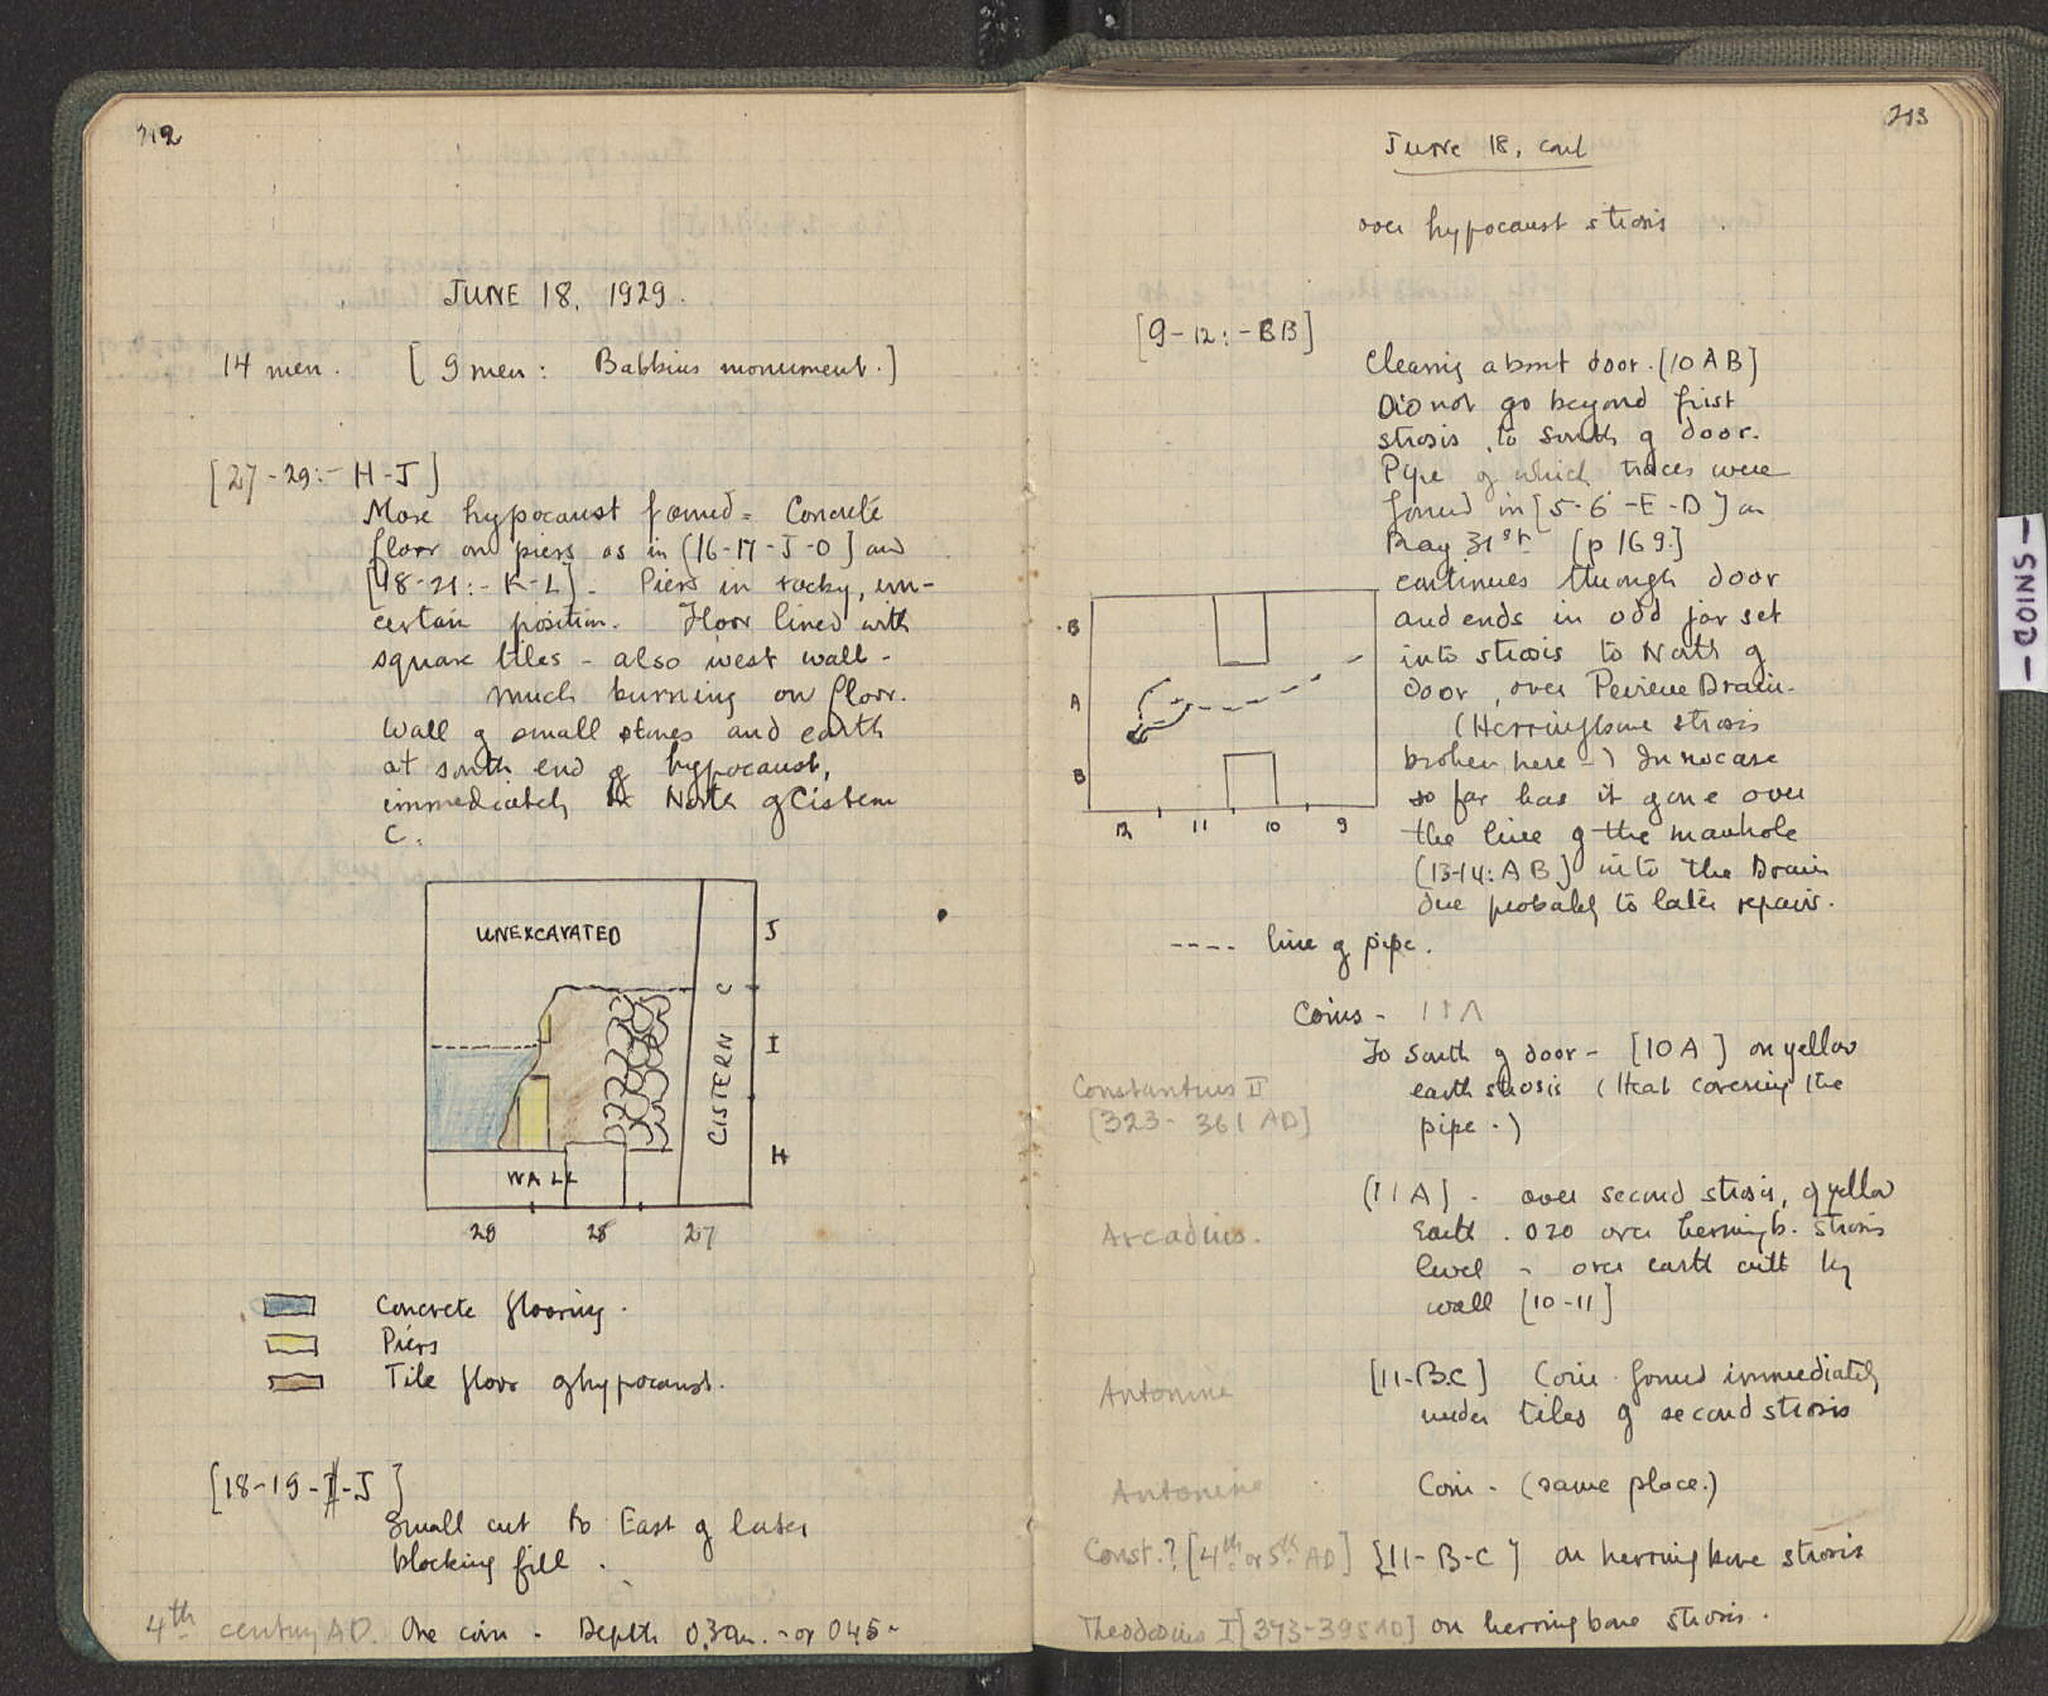 212
JUNE 18, 1929.
14 men. [ 9 men: Babbius monument.]
[27-29:- H-J]
More hypocaust found = Concrete
floor on piers as in [16-17-J-O] and
[18-21:- K-L]. Piers in rocky, un-
certain position. Floor lined with
square tiles - also west wall -
much burning on floor.
Wall of small stones and earth
at south end of hypocaust,
immediately to North of Cistern
C.
UNEXCAVATED
J
C
I
CISTERN
H
WALL
29 28 27
Concrete flooring.
Piers
Tile floor of hypocaust.
[18-19-I-J]
Small cut to East of later
blocking fill.
4th century AD. One coin - Depth 0.30m. - or 045 -
213
June 18, cont
over hypocaust strosis
[9-12:-BB]
Cleaning about door. [10 AB]
Did not go beyond first
strosis to south of door.
Pipe of which traces were
found in [5-6-E-D] on
May 31st [p 169.]
continues through door
and ends in odd jar set
into strosis to North of
door, over Peirene Drain -
(Herringbone strosis
broken here -) In no case
so far has it gone over
the line of the manhole
[13-14: AB] into the Drain
due probably to later repairs.
B
A
B
12 11 10 9
---- line of pipe.
Coins -
To South of door - [10 A] on yellow
earth strosis (that covering the
pipe.)
Constantius II
[323-361 AD]
[11 A] - over second strosis, of yellow
Earth . 020 over herringb. strosis
level - over earth cutt by
wall [10-11]
Arcadius.
[11-B.C] Coin found immediately
under tiles of second strosis
Antonine
Antonine Coin - (same place.)
Const.? [4th or 5th AD] [11-B-C] on herringbone strosis
Theodosius I [393-395 AD] on herringbone strosis.
- COINS -